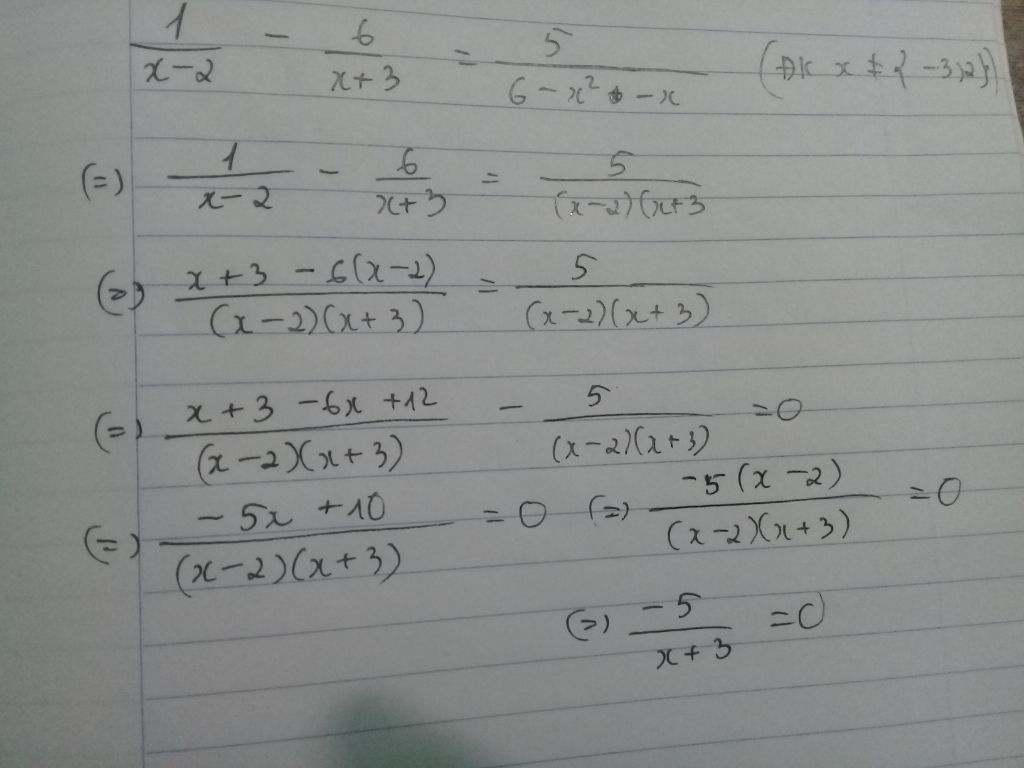 1/(x-2) - 6/(x+3) = 5/(6-x²-x) (ĐK x ≠ {-3;2})
(=) 1/(x-2) - 6/(x+3) = 5/((x-2)(x+3
(=) (x+3 - 6(x-2))/((x-2)(x+3)) = 5/((x-2)(x+3))
(=) (x+3 -6x +12)/((x-2)(x+3)) - 5/((x-2)(x+3)) =0
(=) (-5x +10)/((x-2)(x+3)) = 0 (=) (-5(x-2))/((x-2)(x+3)) =0
(=) -5/(x+3) =0